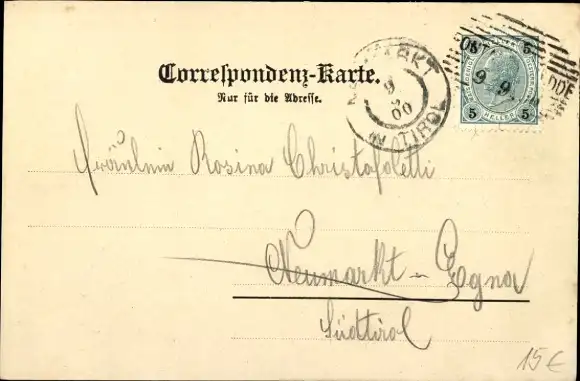 Correspondenz-Karte.
Nur für die Adresse.
NEUMARKT
9
00
IN TIROL
9 9
5 5
5 HELLER 5
Fräulein Rosina Christofoletti
Neumarkt-Egna
Südtirol
15€